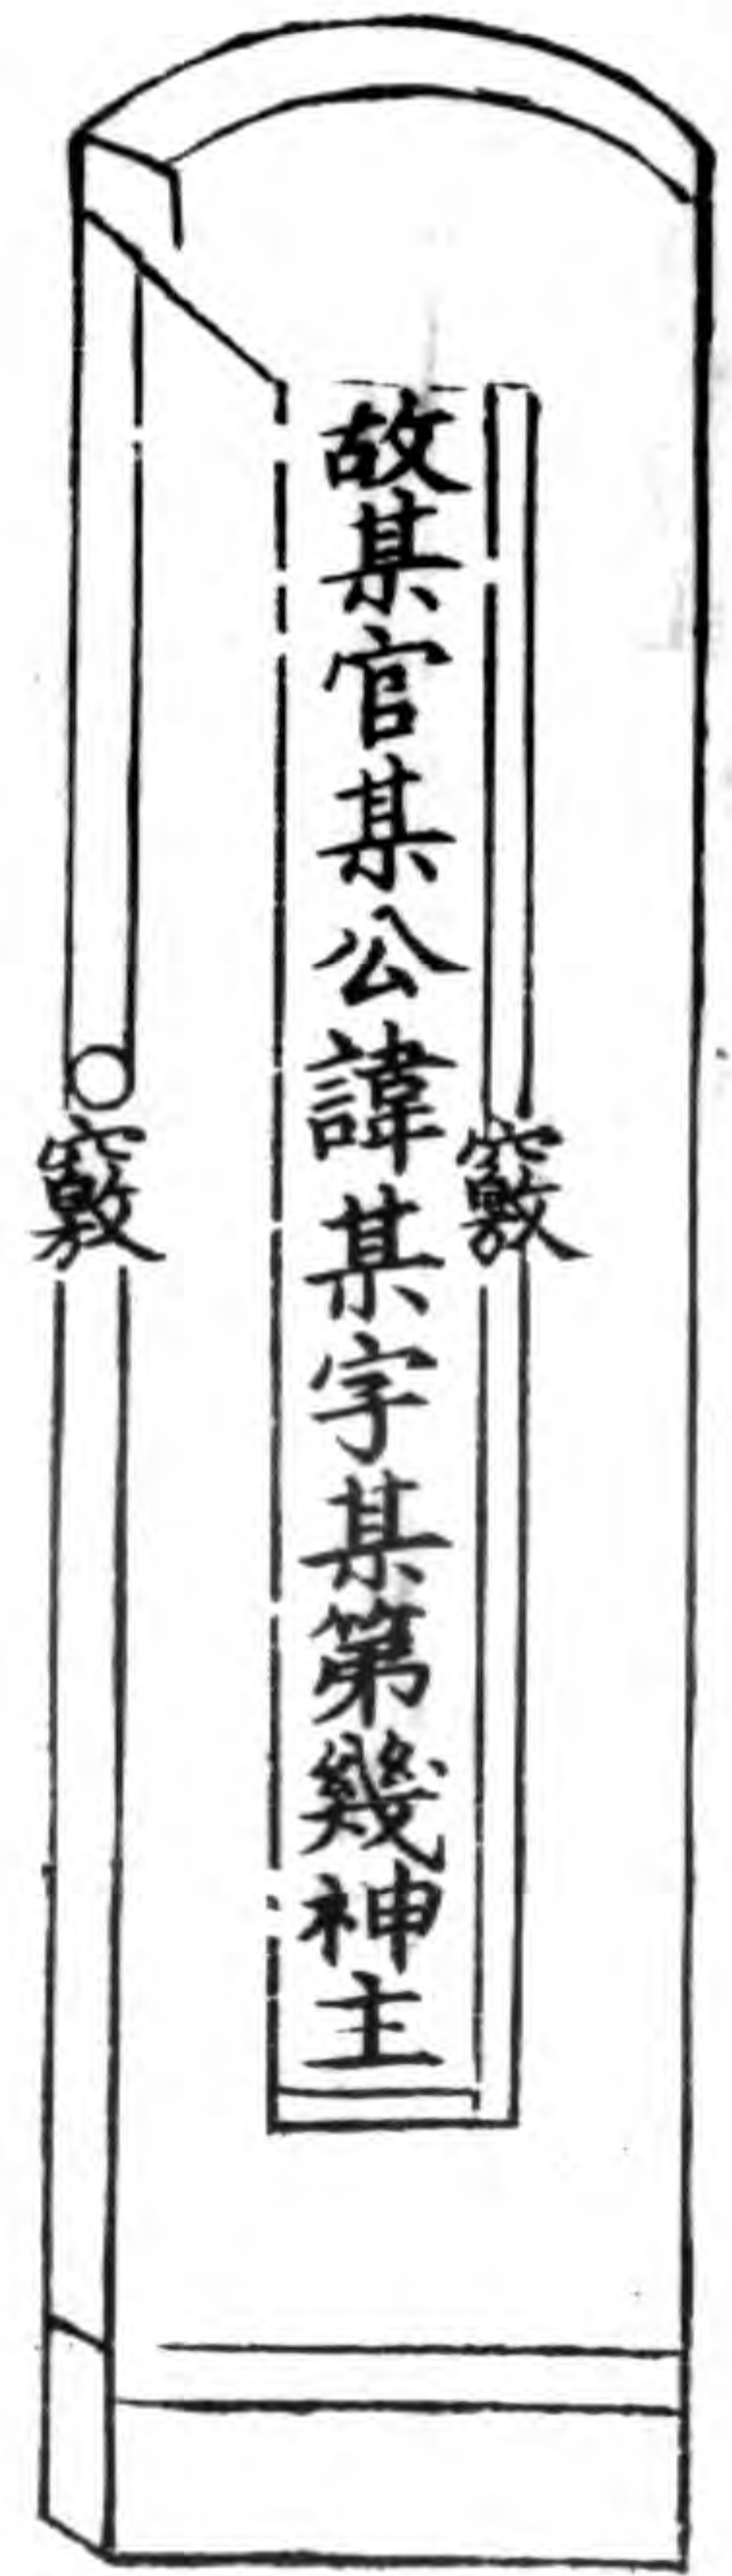 故某官某公諱某字某第幾神主
竅
竅